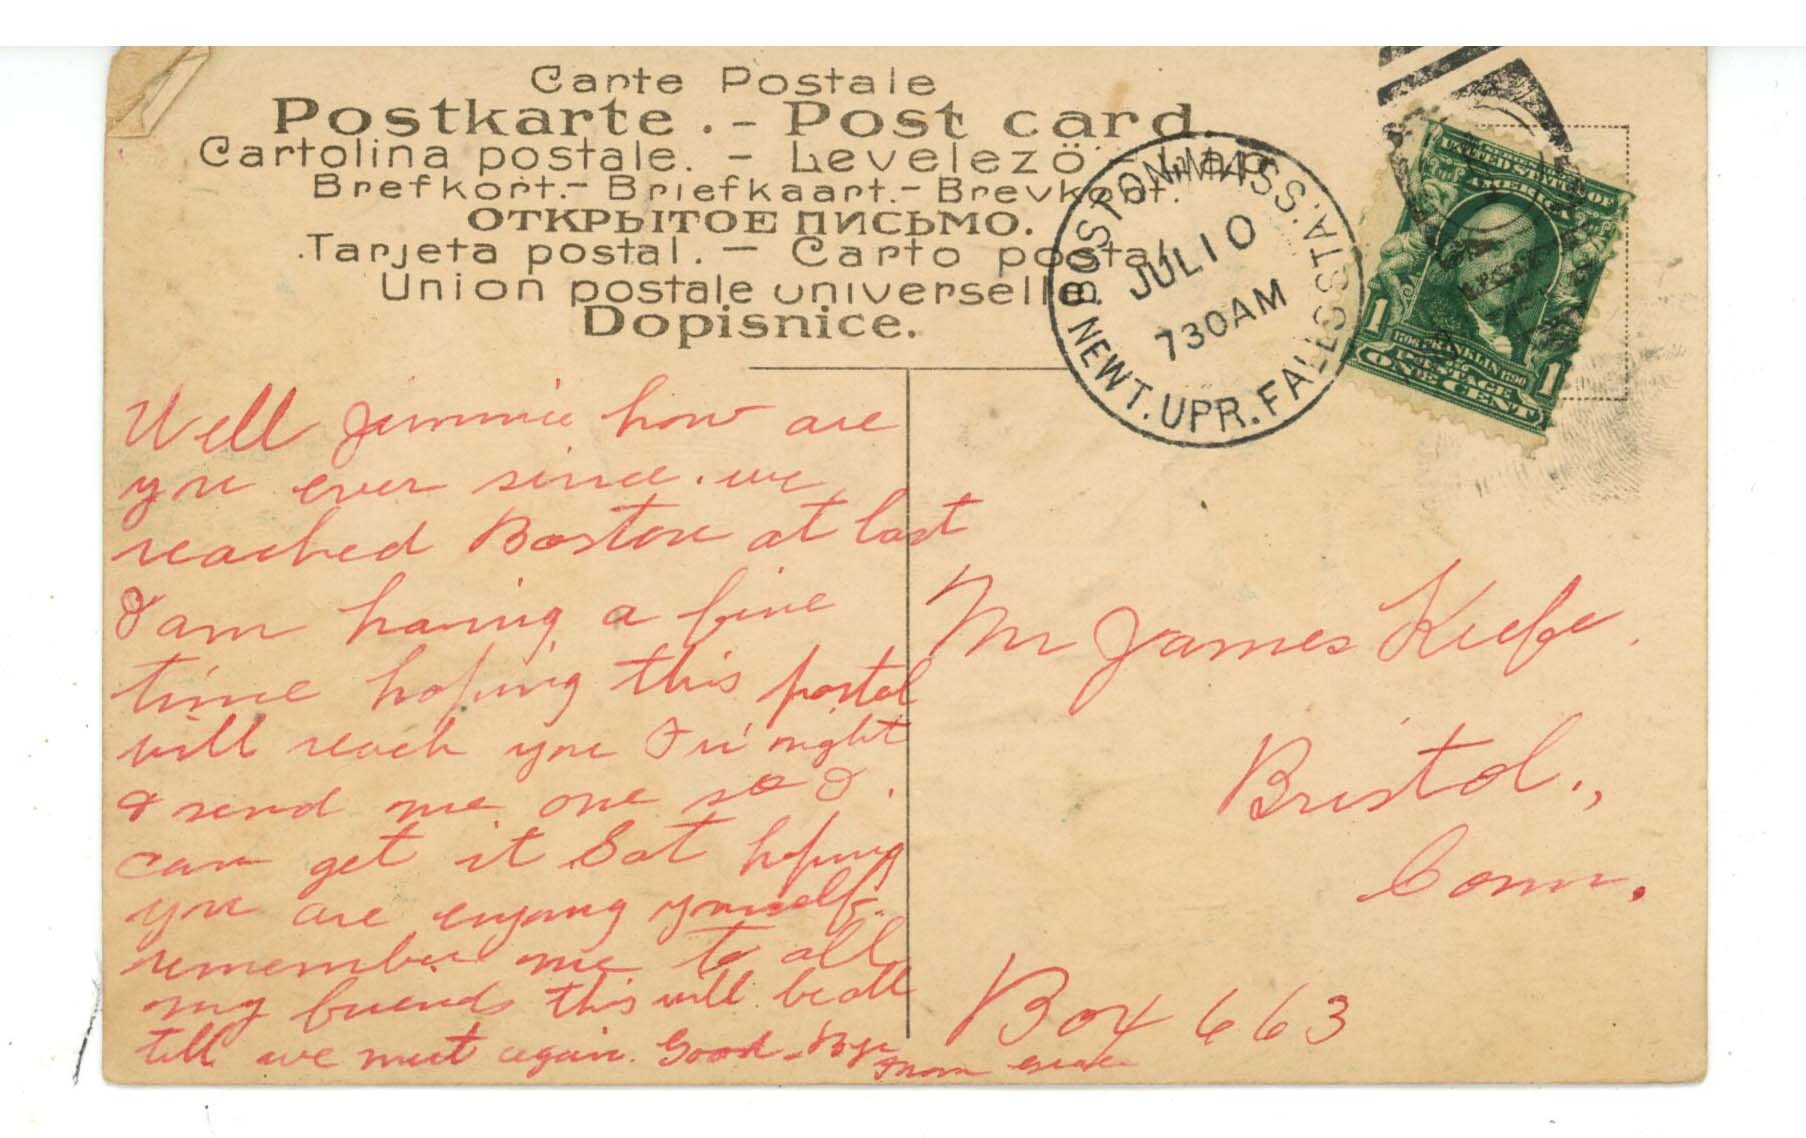 Carte Postale
Postkarte . - Post card.
Cartolina postale. - Levelező - Lap.
Brefkort.- Briefkaart.- Brevkort.
ОТКРЫТОЕ ПИСЬМО.
Tarjeta postal. — Carto postal
Union postale universelle
Dopisnice.
BOSTON, MASS.
JUL 10
730AM
NEWT. UPR. FALLS STA.
SERIES 1902
UNITED STATES OF
AMERICA
1706 FRANKLIN 1790
1 POSTAGE 1
ONE CENT
Well Jimmie how are
you ever since. we
reached Boston at last
I am having a fine
time hoping this postal
will reach you Fri night
& send me one so I.
can get it Sat hoping
you are enjoying yourself.
remember me to all
my friends this will be all
till we meet again. Good-Bye
From Grace
Mr James Keefe.
Bristol.,
Conn.
Box 663